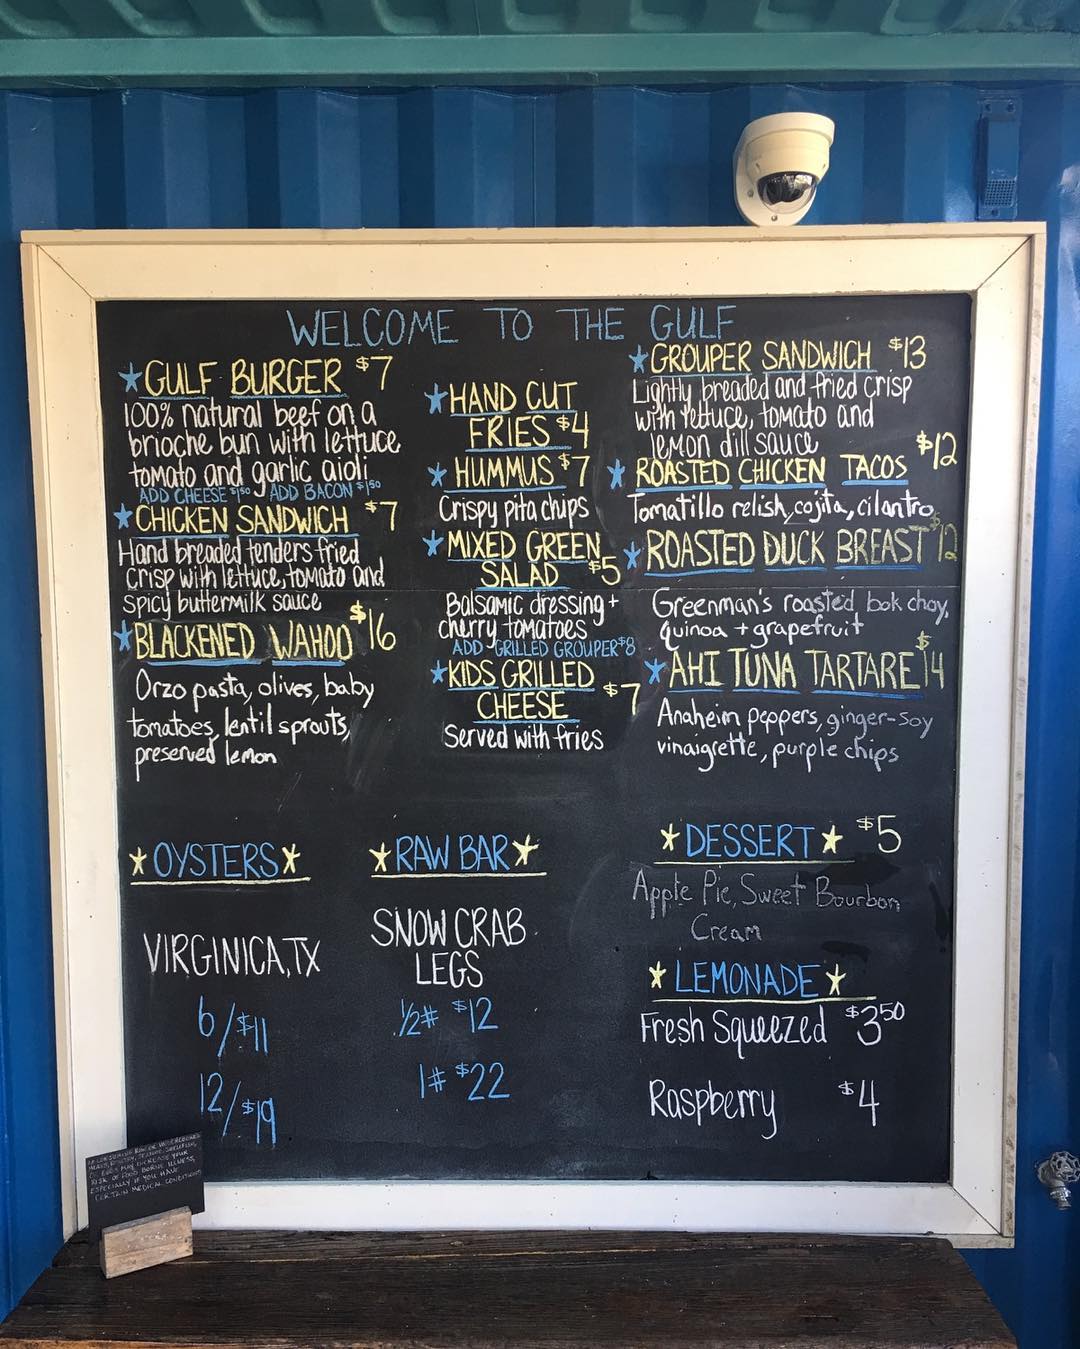 WELCOME TO THE GULF
★GULF BURGER $7
100% natural beef on a
brioche bun with lettuce,
tomato and garlic aioli
ADD CHEESE $1.50 ADD BACON $1.50
★CHICKEN SANDWICH $7
Hand breaded tenders fried
crisp with lettuce, tomato and
spicy buttermilk sauce
★BLACKENED WAHOO $16
Orzo pasta, olives, baby
tomatoes, lentil sprouts,
preserved lemon
★HAND CUT
FRIES $4
★HUMMUS $7
Crispy pita chips
★MIXED GREEN
SALAD $5
Balsamic dressing +
cherry tomatoes
ADD GRILLED GROUPER $8
★KIDS GRILLED
CHEESE $7
Served with fries
★GROUPER SANDWICH $13
Lightly breaded and fried crisp
with lettuce, tomato and
lemon dill sauce
★ROASTED CHICKEN TACOS $12
Tomatillo relish, cojita, cilantro
★ROASTED DUCK BREAST $12
Greenman's roasted, bok choy,
quinoa + grapefruit
★AHI TUNA TARTARE $14
Anaheim peppers, ginger-soy
vinaigrette, purple chips
★OYSTERS★
VIRGINICA, TX
6/$11
12/$19
★RAW BAR★
SNOW CRAB
LEGS
1/2# $12
1# $22
★DESSERT★ $5
Apple Pie, Sweet Bourbon
Cream
★LEMONADE★
Fresh Squeezed $3.50
Raspberry $4
CONSUMING RAW OR UNDERCOOKED
MEATS, POULTRY, SEAFOOD, SHELLFISH,
OR EGGS MAY INCREASE YOUR
RISK OF FOOD BORNE ILLNESS,
ESPECIALLY IF YOU HAVE
CERTAIN MEDICAL CONDITIONS